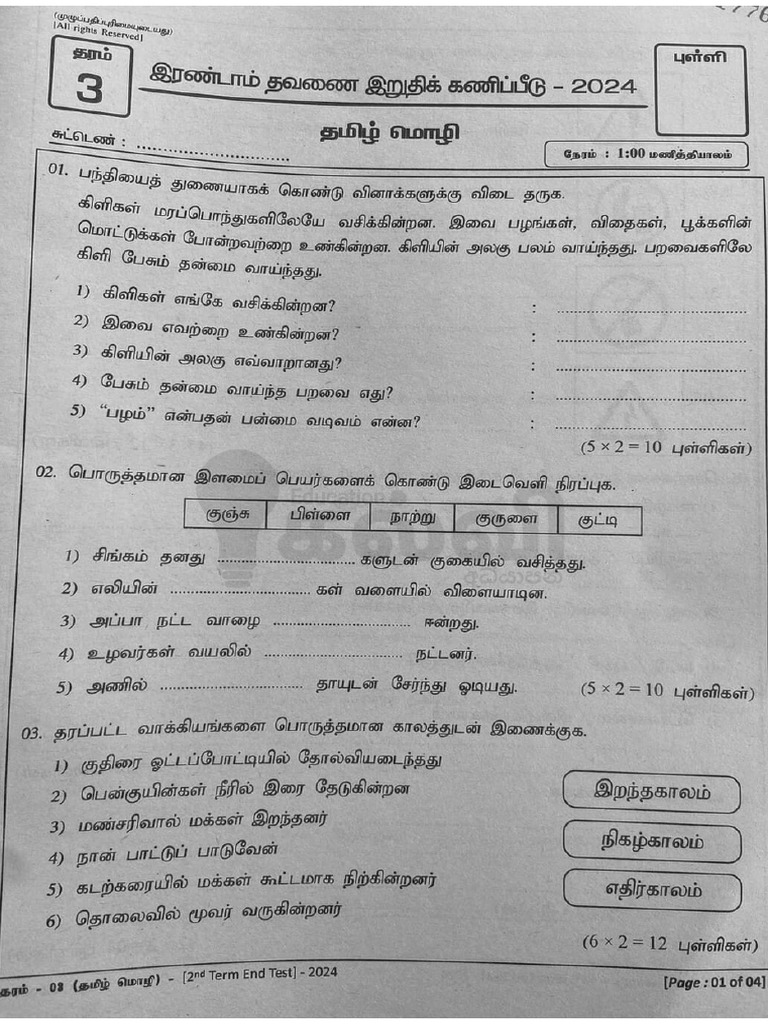 (முழுப்பதிப்புரிமையுடையது)
[All rights Reserved]
தரம்
3
இரண்டாம் தவணை இறுதிக் கணிப்பீடு - 2024
புள்ளி
தமிழ் மொழி
சுட்டெண் : ................................
நேரம் : 1:00 மணித்தியாலம்
01. பந்தியைத் துணையாகக் கொண்டு வினாக்களுக்கு விடை தருக.
கிளிகள் மரப்பொந்துகளிலேயே வசிக்கின்றன. இவை பழங்கள், விதைகள், பூக்களின்
மொட்டுக்கள் போன்றவற்றை உண்கின்றன. கிளியின் அலகு பலம் வாய்ந்தது. பறவைகளிலே
கிளி பேசும் தன்மை வாய்ந்தது.
1) கிளிகள் எங்கே வசிக்கின்றன? : ................................
2) இவை எவற்றை உண்கின்றன? : ................................
3) கிளியின் அலகு எவ்வாறானது? : ................................
4) பேசும் தன்மை வாய்ந்த பறவை எது? : ................................
5) “பழம்” என்பதன் பன்மை வடிவம் என்ன? : ................................
(5 × 2 = 10 புள்ளிகள்)
02. பொருத்தமான இளமைப் பெயர்களைக் கொண்டு இடைவெளி நிரப்புக.
குஞ்சு பிள்ளை நாற்று குருளை குட்டி
1) சிங்கம் தனது ................................ களுடன் குகையில் வசித்தது.
2) எலியின் ................................ கள் வளையில் விளையாடின.
3) அப்பா நட்ட வாழை ................................ ஈன்றது.
4) உழவர்கள் வயலில் ................................ நட்டனர்.
5) அணில் ................................ தாயுடன் சேர்ந்து ஓடியது. (5 × 2 = 10 புள்ளிகள்)
03. தரப்பட்ட வாக்கியங்களை பொருத்தமான காலத்துடன் இணைக்குக.
1) குதிரை ஓட்டப்போட்டியில் தோல்வியடைந்தது
2) பென்குயின்கள் நீரில் இரை தேடுகின்றன
3) மண்சரிவால் மக்கள் இறந்தனர்
4) நான் பாட்டுப் பாடுவேன்
5) கடற்கரையில் மக்கள் கூட்டமாக நிற்கின்றனர்
6) தொலைவில் மூவர் வருகின்றனர்
இறந்தகாலம்
நிகழ்காலம்
எதிர்காலம்
(6 × 2 = 12 புள்ளிகள்)
தரம் - 03 (தமிழ் மொழி) - [2nd Term End Test] - 2024
[Page : 01 of 04]